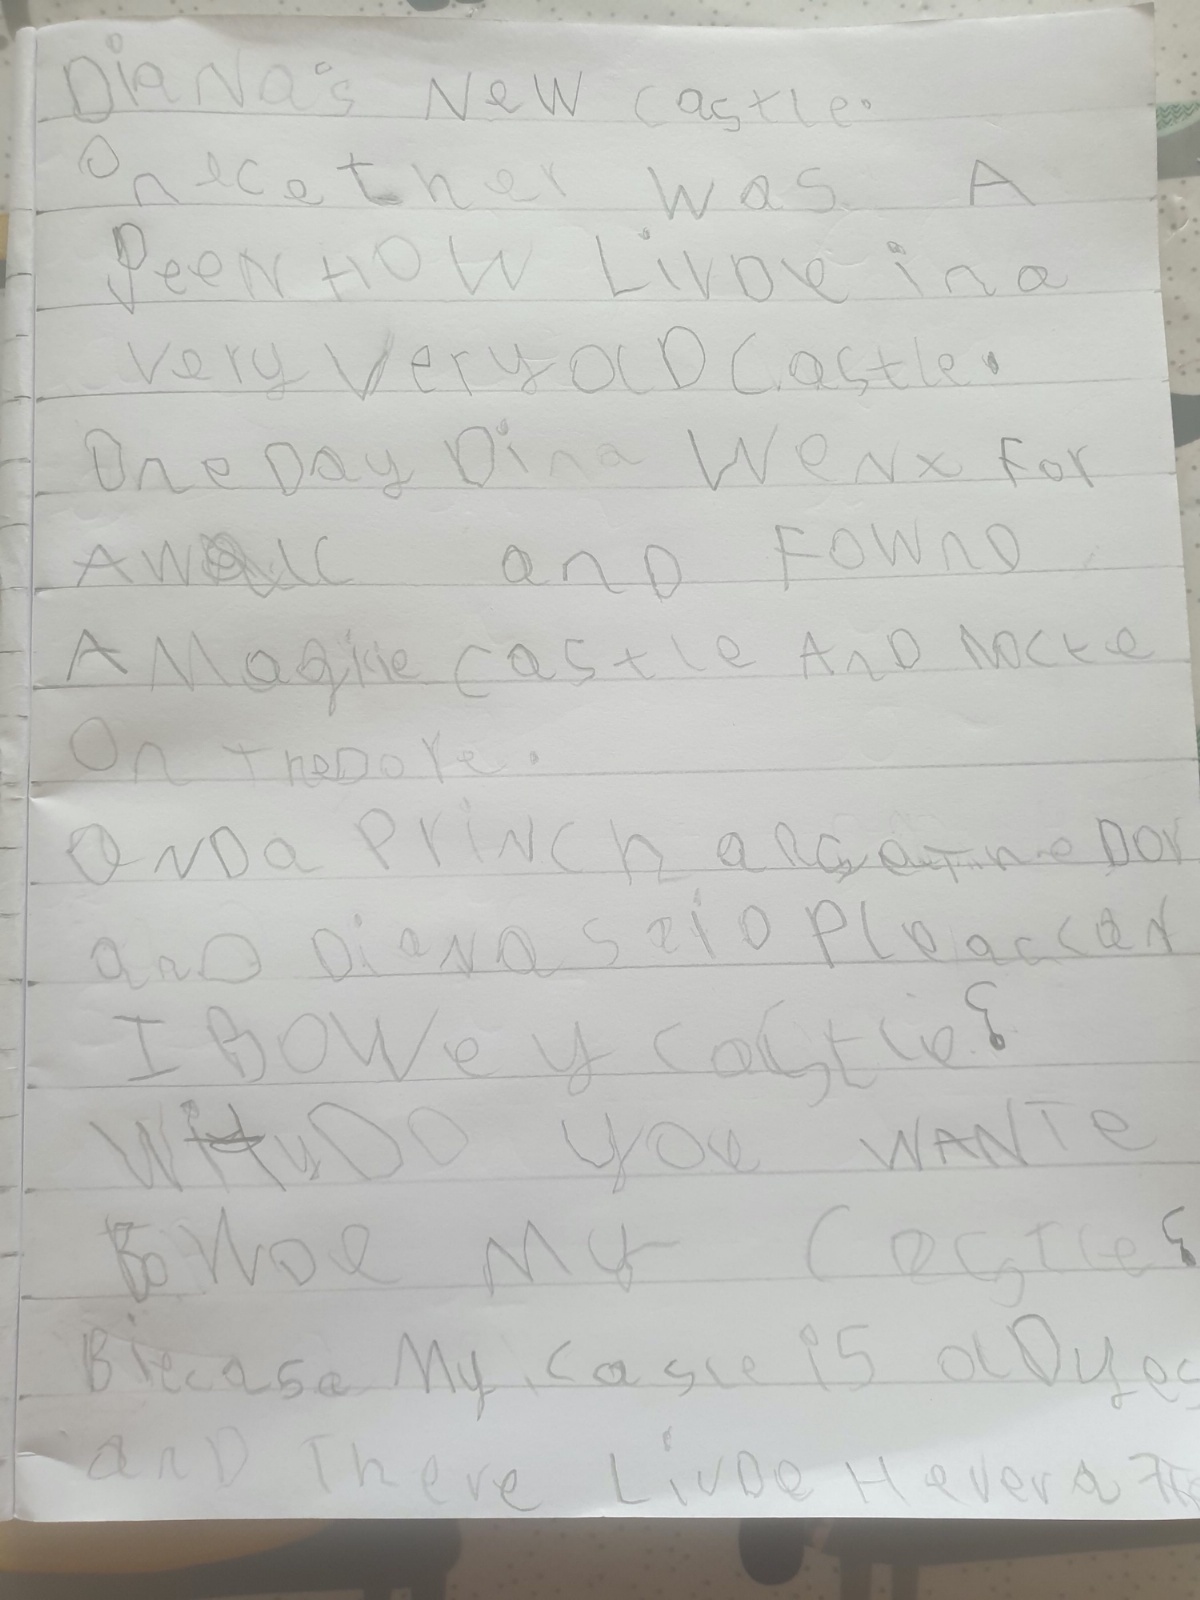 DiaNa's New castle.
Onece ther was A
PeeN HOW Livde in a
very very old Castle.
One Day Dina WeNx For
A Walc and FOWnD
A Magkie castle AnD Nocke
On The Dore.
OnDa PriNch at the Dor
anD DiaNa seiD Pleac caN
I BOWey castle?
Why DO yoe WANTe
BoWoe My Castle?
Biecase My Casle is olD yes
anD There Livde Hever a